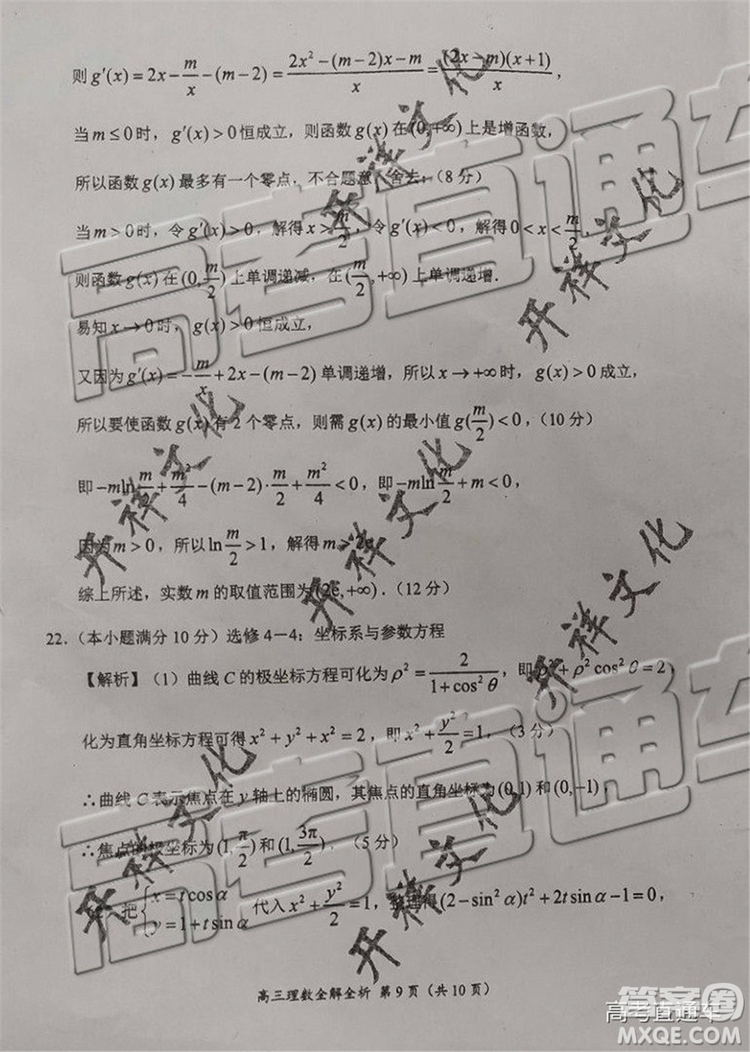 则g′(x)=2x-m/x-(m-2)=(2x²-(m-2)x-m)/x=(2x-m)(x+1)/x,
当m≤0时,g′(x)>0恒成立,则函数g(x)在(0,+∞)上是增函数,
所以函数g(x)最多有一个零点,不合题意,舍去;(8分)
当m>0时,令g′(x)>0,解得x>m/2,令g′(x)<0,解得0<x<m/2,
则函数g(x)在(0,m/2)上单调递减,在(m/2,+∞)上单调递增.
易知x→0时,g(x)>0恒成立,
又因为g′(x)=-m/x+2x-(m-2)单调递增,所以x→+∞时,g(x)>0成立,
所以要使函数g(x)有2个零点,则需g(x)的最小值g(m/2)<0,(10分)
即-mln m/2+m²/4-(m-2)·m/2+m²/4<0,即-mln m/2+m<0,
因为m>0,所以ln m/2>1,解得m>2e,
综上所述,实数m的取值范围为(2e,+∞).(12分)
22.(本小题满分10分)选修4-4:坐标系与参数方程
【解析】(1)曲线C的极坐标方程可化为ρ²=2/(1+cos²θ),即ρ²+ρ²cos²θ=2,
化为直角坐标方程可得x²+y²+x²=2,即x²+y²/2=1,(3分)
∴曲线C表示焦点在y轴上的椭圆,其焦点的直角坐标为(0,1)和(0,-1),
∴焦点的极坐标为(1,π/2)和(1,3π/2).(5分)
把{x=tcosα y=1+tsinα 代入x²+y²/2=1,整理得(2-sin²α)t²+2tsinα-1=0,
高三理数全解全析 第9页(共10页)
高考直通车
高考直通车
开祥文化
开祥文化
开祥文化
开祥文化
开祥文化
开祥文化
开祥文化
高考直通车
答案圈
MXQE.COM